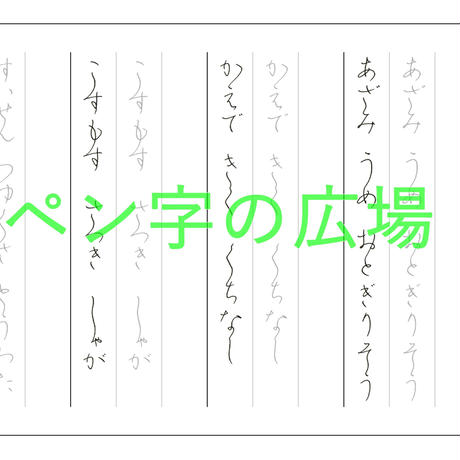 あざみ うめ おとぎりそう
あざみ うめ おとぎりそう
かえで きく くちなし
かえで きく くちなし
こすもす さつき しゃが
こすもす さつき しゃが
すいせん つゆくさ
ペン字の広場